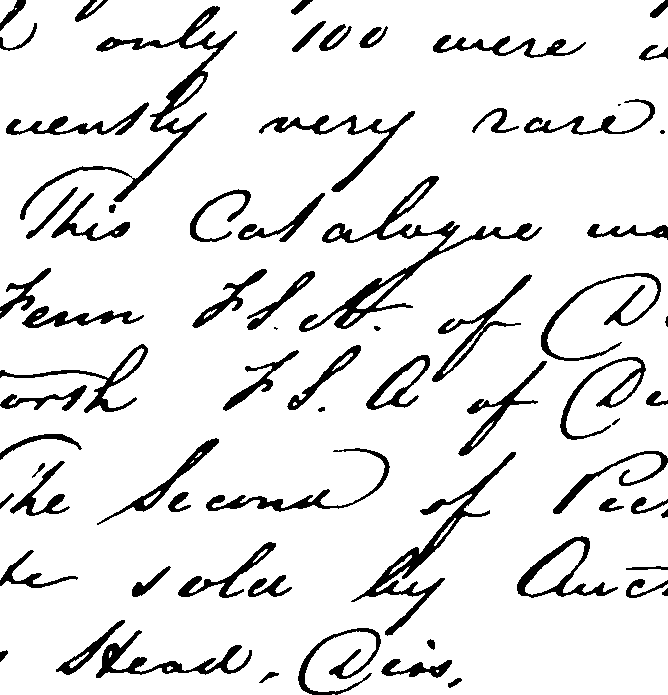 only 100 were
uently very rare.
This Catalogue wa
Fenn F.S.A. of D
orth F.S.A of D
The Second of Pic
te sold by Auct
Stead, Diss,